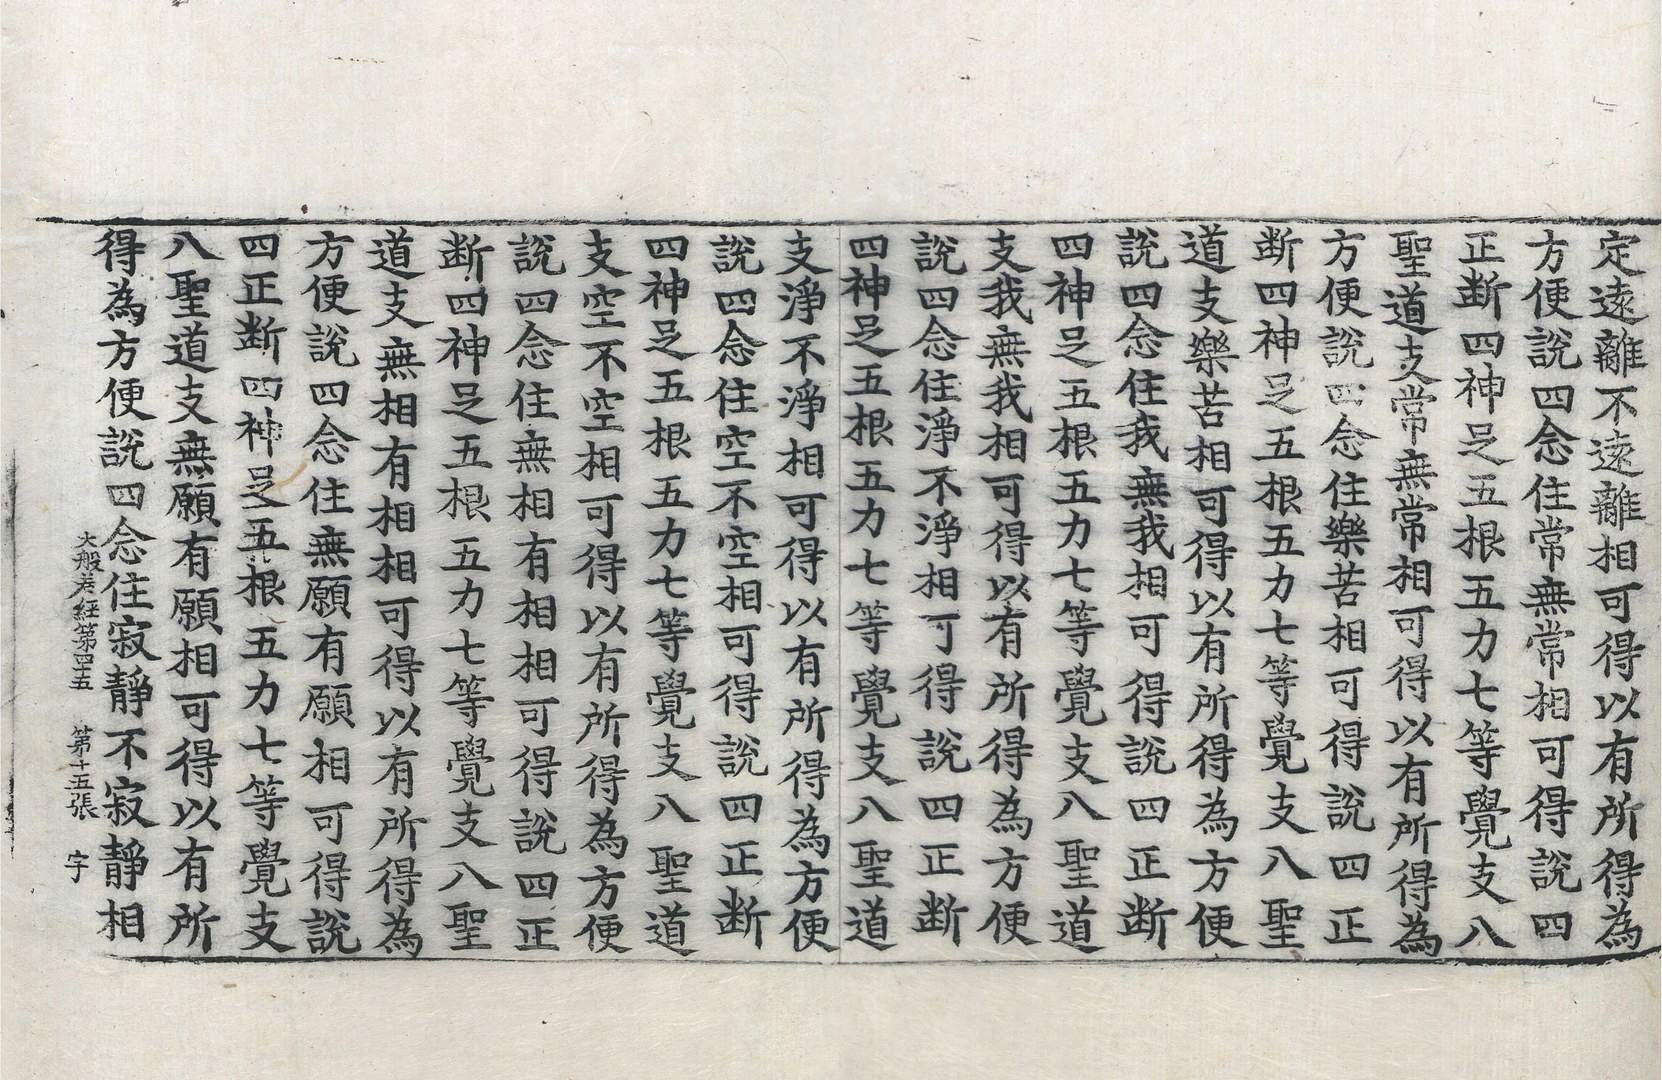 定遠離不遠離相可得以有所得為
方便說四念住常無常相可得說四
正断四神足五根五力七等覺支八
聖道支常無常相可得以有所得為
方便說四念住樂苦相可得說四正
断四神足五根五力七等覺支八聖
道支樂苦相可得以有所得為方便
說四念住我無我相可得說四正断
四神足五根五力七等覺支八聖道
支我無我相可得以有所得為方便
說四念住淨不淨相可得說四正断
四神足五根五力七等覺支八聖道
支淨不淨相可得以有所得為方便
說四念住空不空相可得說四正断
四神足五根五力七等覺支八聖道
支空不空相可得以有所得為方便
說四念住無相有相相可得說四正
断四神足五根五力七等覺支八聖
道支無相有相相可得以有所得為
方便說四念住無願有願相可得說
四正断四神足五根五力七等覺支
八聖道支無願有願相可得以有所
得為方便說四念住寂靜不寂靜相
大般若經第四十五 第十五張 字